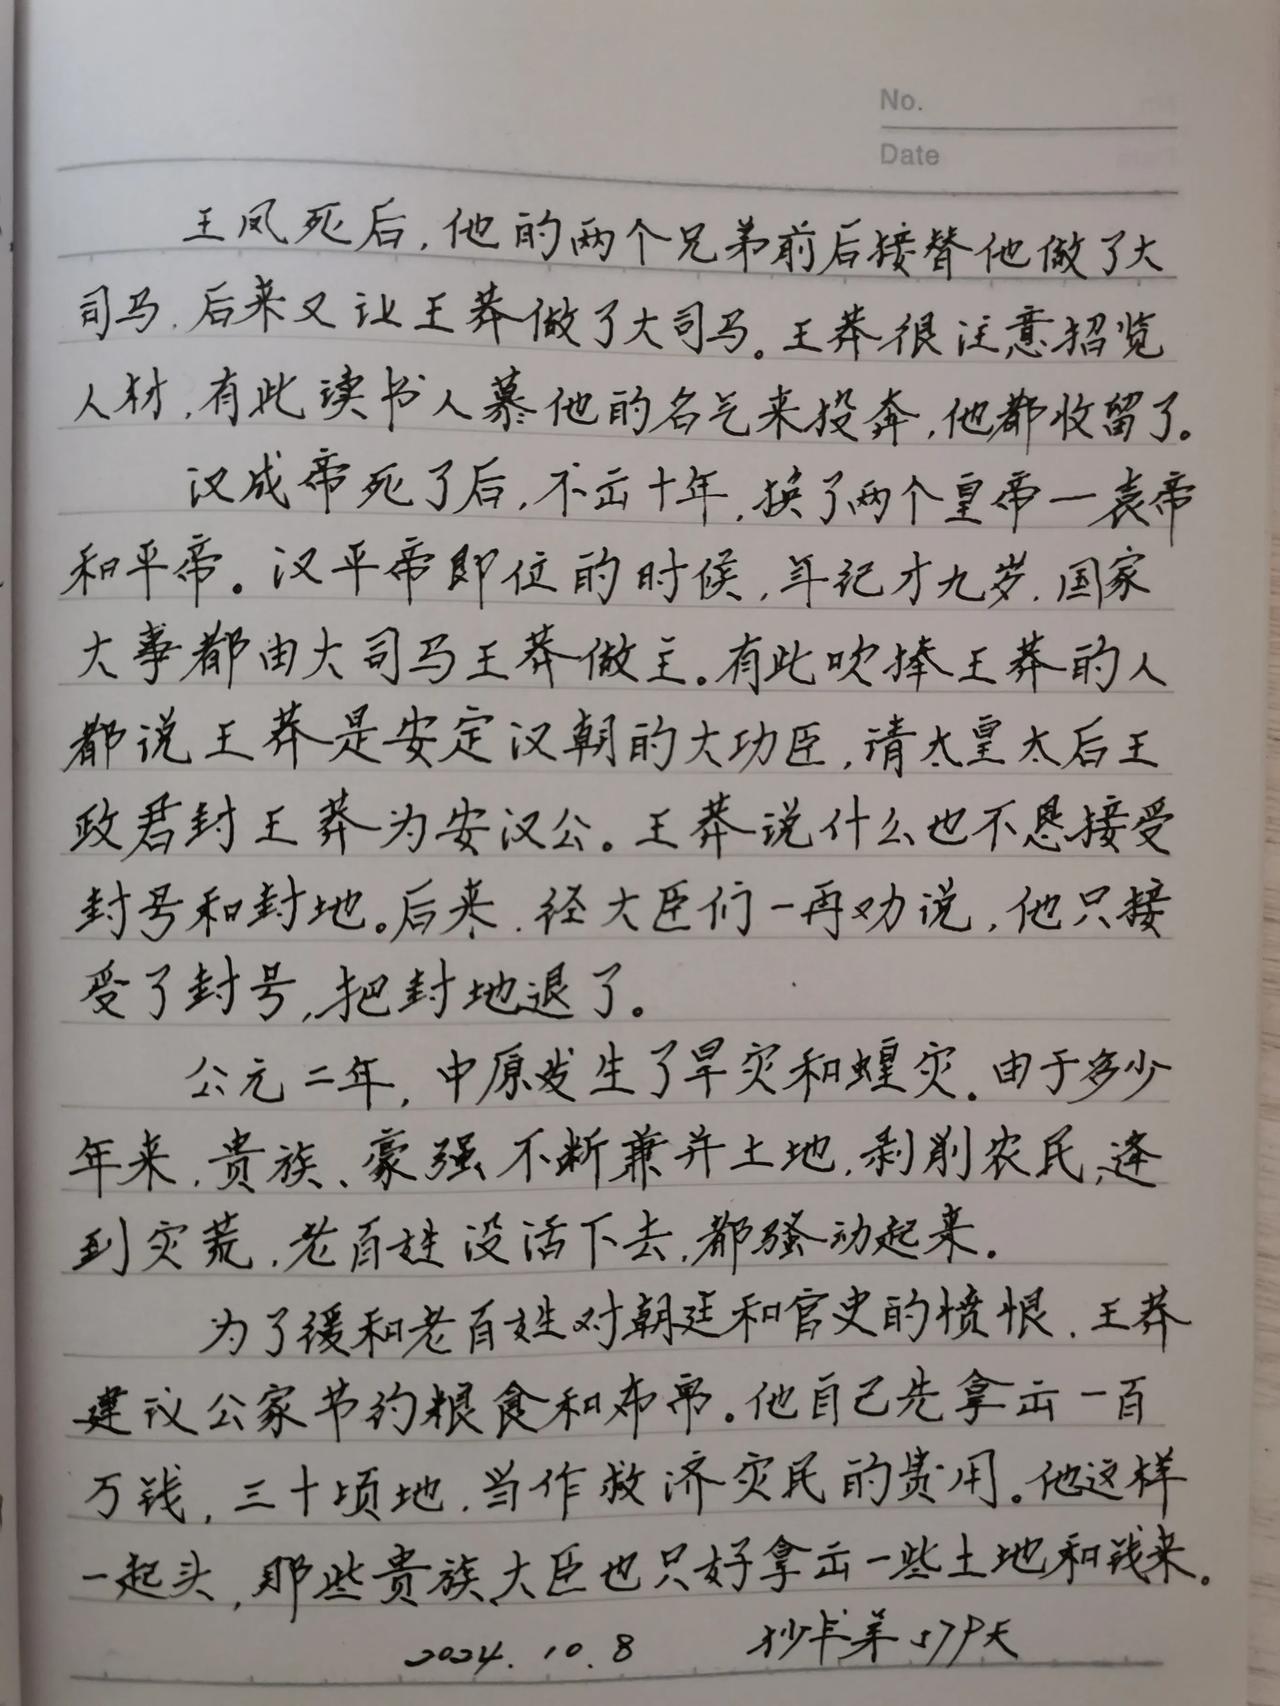 No.
Date
王凤死后，他的两个兄弟前后接替他做了大
司马，后来又让王莽做了大司马。王莽很注意招览
人材，有此读书人慕他的名气来投奔，他都收留了。
汉成帝死了后，不出十年，换了两个皇帝一哀帝
和平帝。汉平帝即位的时候，年纪才九岁，国家
大事都由大司马王莽做主。有此吹捧王莽的人
都说王莽是安定汉朝的大功臣，请太皇太后王
政君封王莽为安汉公。王莽说什么也不恳接受
封号和封地。后来，经大臣们一再劝说，他只接
受了封号，把封地退了。
公元二年，中原发生了旱灾和蝗灾。由于多少
年来，贵族、豪强不断兼并土地，剥削农民，逢
到灾荒，老百姓没活下去，都骚动起来。
为了缓和老百姓对朝廷和官吏的愤恨，王莽
建议公家节约粮食和布帛。他自己先拿出一百
万钱，三十顷地，当作救济灾民的费用。他这样
一起头，那些贵族、大臣也只好拿出一些土地和钱来。
2024.10.8 抄书第579天